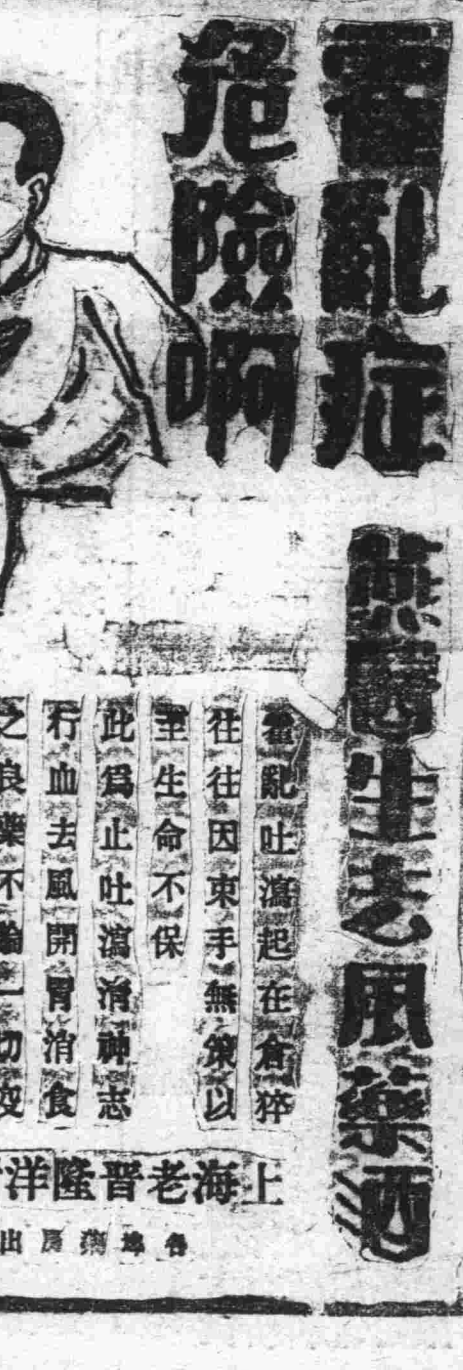 霍亂症
危險啊
燕醫生去風藥酒
霍亂吐瀉起在倉猝
往往因束手無策以
至生命不保
此爲止吐瀉淸神志
行血去風開胃消食
之良藥不論一切
上海老晋隆洋
各埠藥房出